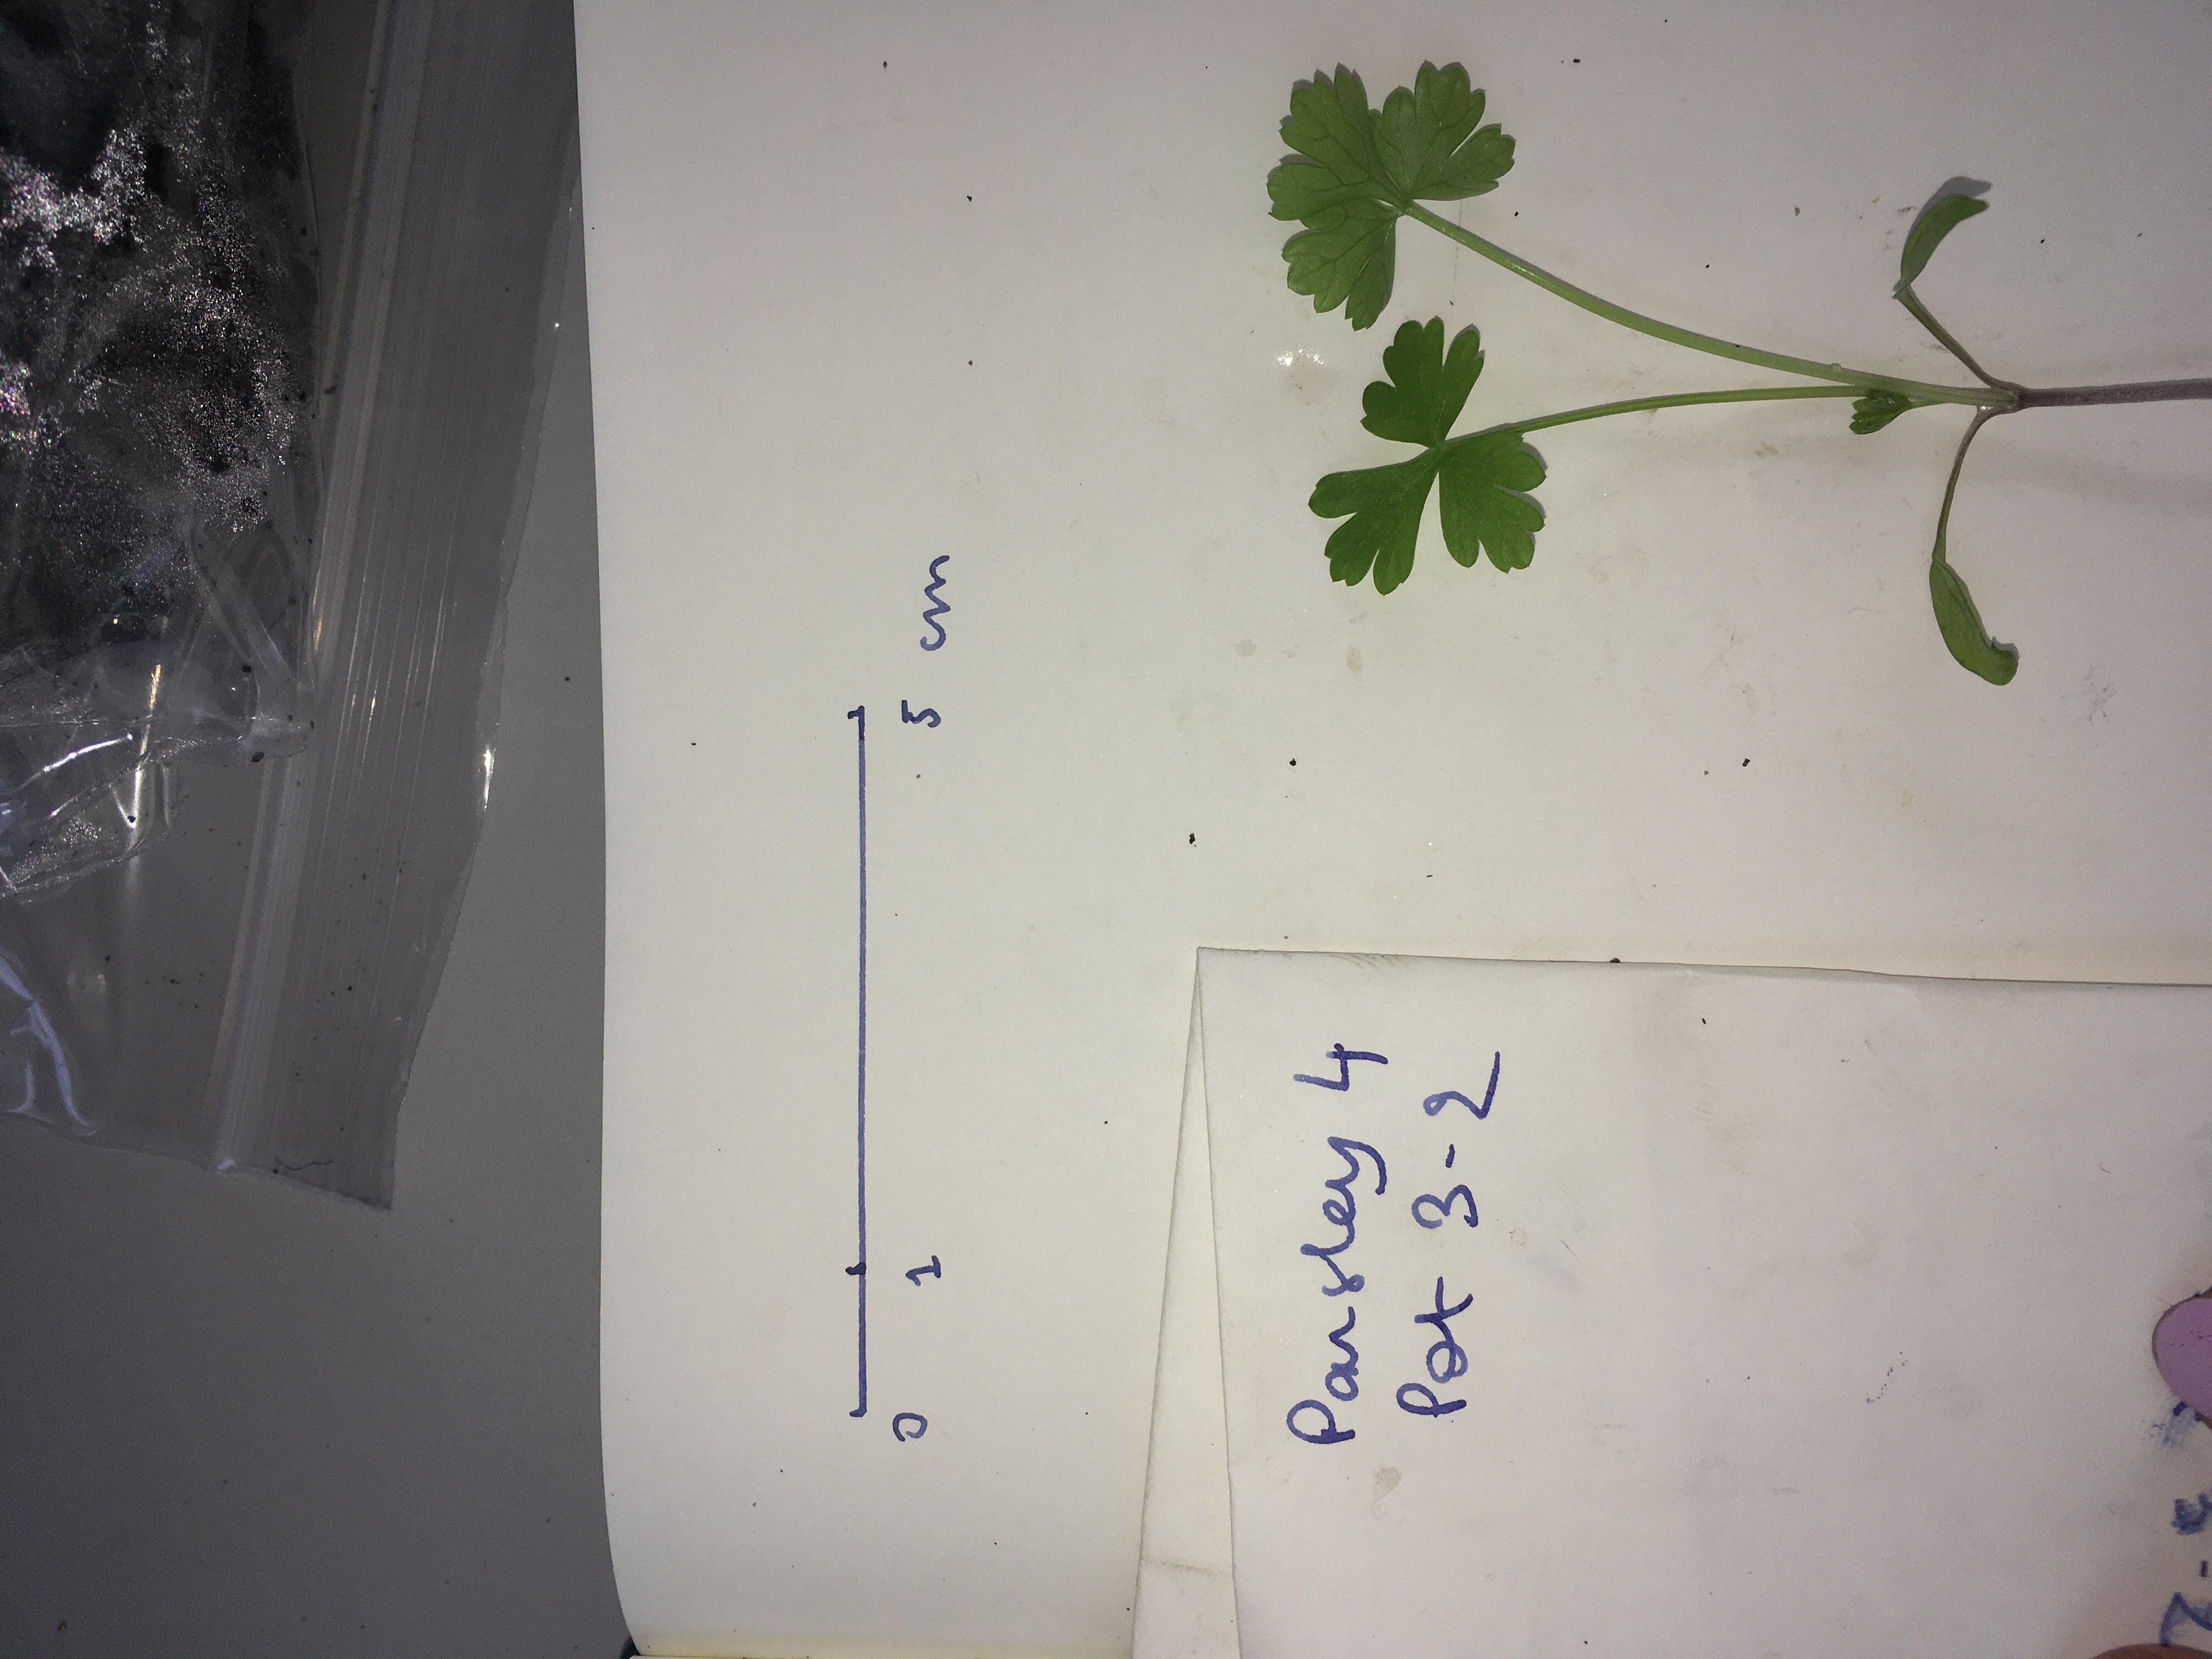 0 1 5 cm
Parsley 4
Pot 3-2